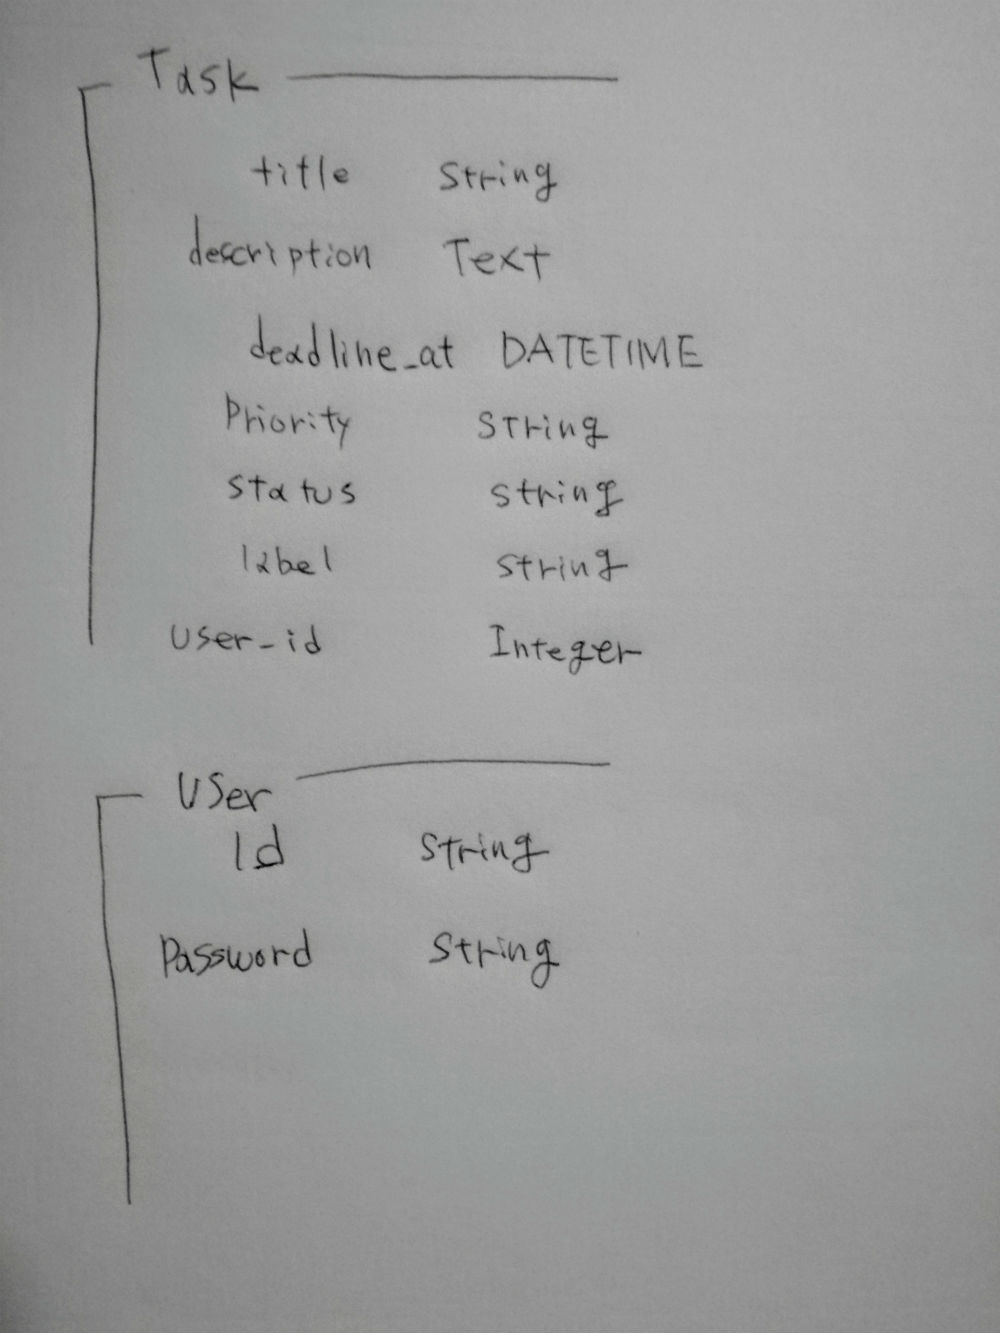 Task
title String
description Text
deadline_at DATETIME
Priority STring
status string
label string
user_id Integer
User
Id String
Password String